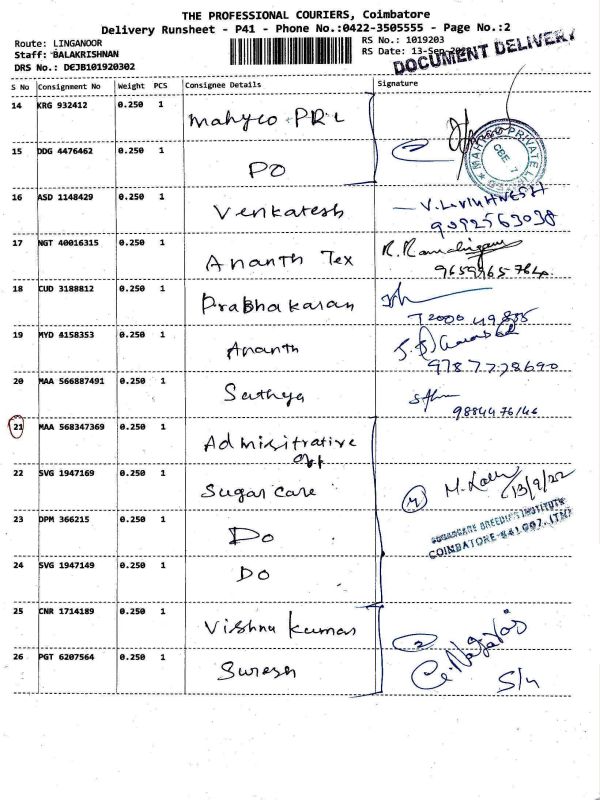 THE PROFESSIONAL COURIERS, Coimbatore
Delivery Runsheet - P41 - Phone No.:0422-3505555 - Page No.:2
Route: LINGANOOR
Staff: BALAKRISHNAN
DRS No.: DEJB101920302
RS No.: 1019203
RS Date: 13-Sep
DOCUMENT DELIVERY
S No Consignment No Weight PCS Consignee Details Signature
14 KRG 932412 0.250 1 Mahyco PRL
15 DDG 4476462 0.250 1 DO
MAHYCO PRIVATE LIMITED
CBE 7
16 ASD 1148429 0.250 1 Venkatesh
9092563038
17 NGT 40016315 0.250 1 Ananth Tex R. Ramalingam
18 CUD 3188812 0.250 1 Prabhakaran
19 MYD 4158353 0.250 1 Ananth
9787728690
20 MAA 566887491 0.250 1 Sathya
21 MAA 568347369 0.250 1 Admisitrative
off
22 SVG 1947169 0.250 1 Sugar care 4 13/9/22
SUGARCANE BREEDING INSTITUTE
COIMBATORE-641 007. (TN)
23 DPM 366215 0.250 1 Do
24 SVG 1947149 0.250 1 DO
25 CNR 1714189 0.250 1 Vishnu kumar 2
C. Nagaraj
26 PGT 6207564 0.250 1 Suresh